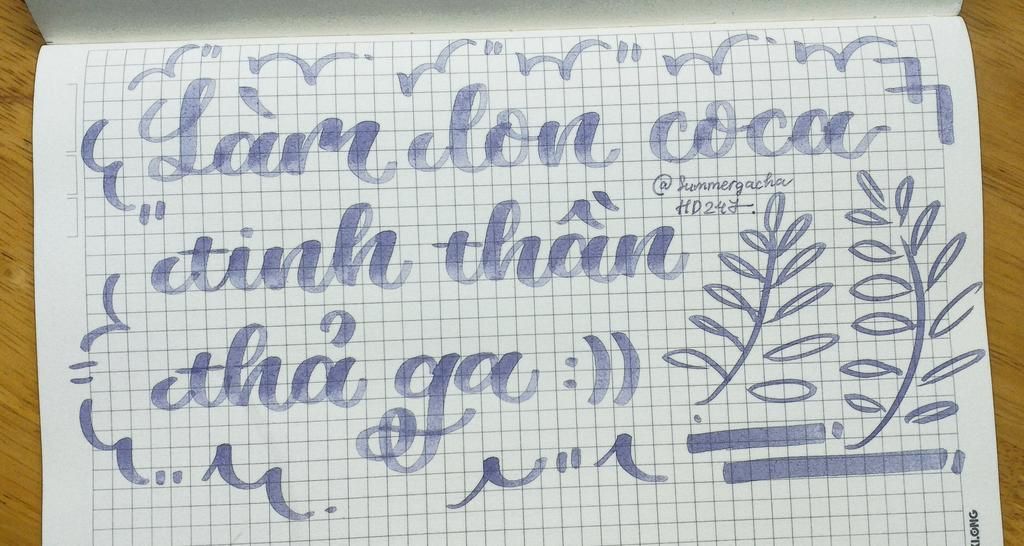 Làm lon coca
@Summergacha
HD247
tinh thần
thả ga :))